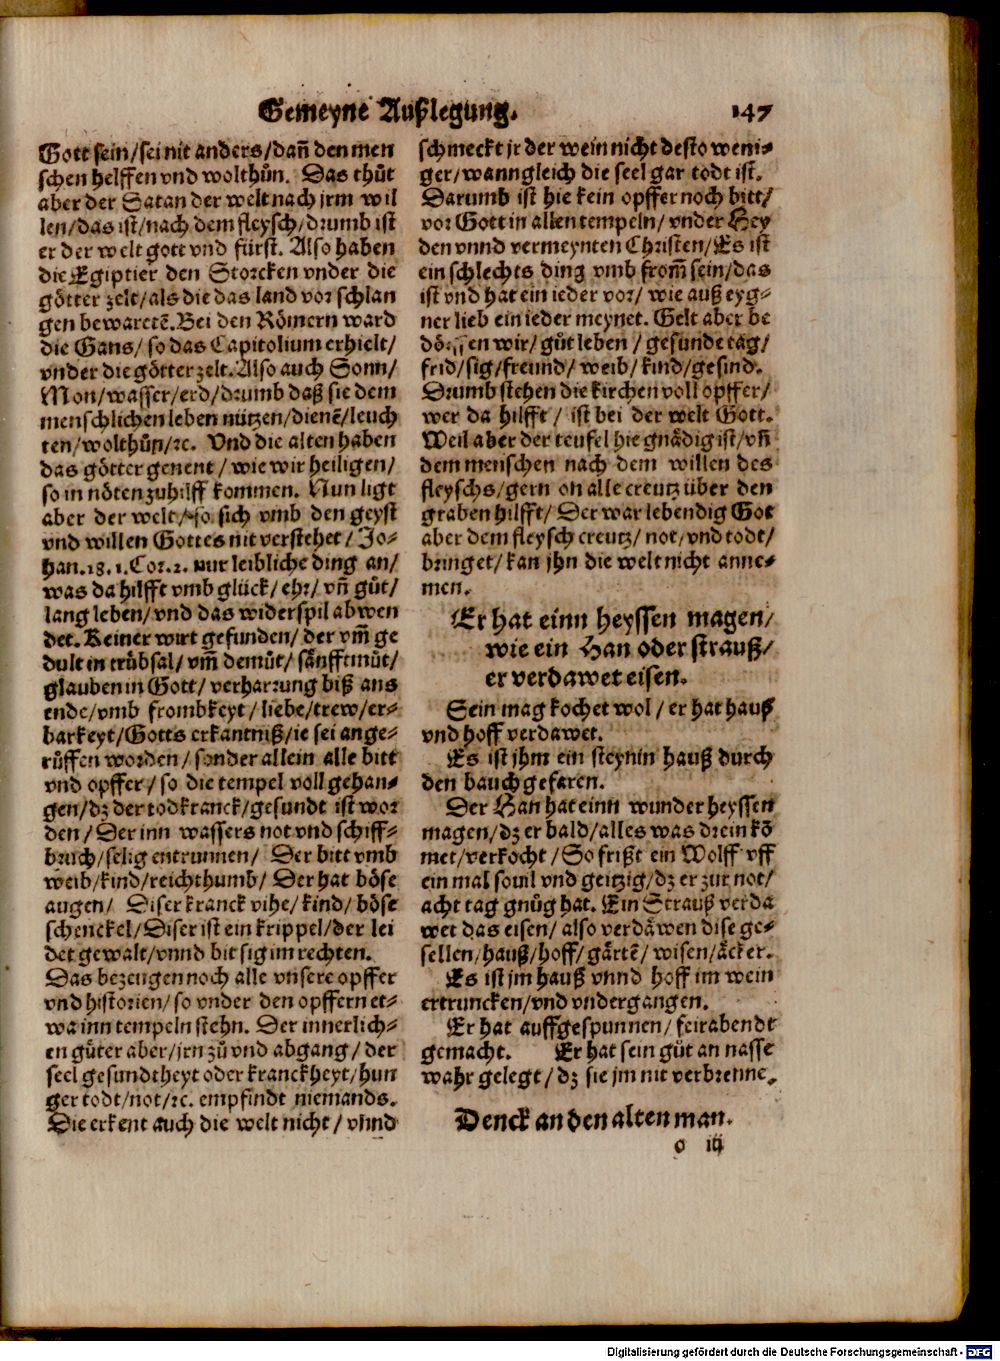 Gemeyne Außlegung. 147
Gott sein/sei nit anders/dañ den men
schen helffen vnd wolthůn. Das thůt
aber der Satan der welt nach jrm wil
len/das ist/nach dem fleysch/drumb ist
er der welt gott vnd fürst. Also haben
die Egiptier den Storcken vnder die
götter zelt/als die das land vor schlan
gen bewaretẽ. Bei den Römern ward
die Gans/so das Capitolium erhielt/
vnder die götter zelt. Also auch Sonn/
Mon/wasser/erd/drumb daß sie dem
menschlichen leben nützen/dienẽ/leuch
ten/wolthůn/ꝛc. Vnd die alten haben
das götter genent/wie wir heiligen/
so in nöten zuhilff kommen. Nun ligt
aber der welt/so sich vmb den geyst
vnd willen Gottes nit verstehet/Jo-
han.18. 1.Cor.2. nur leibliche ding an/
was da hilfft vmb glück/ehr/vñ gůt/
lang leben/vnd das widerspil abwen
det. Keiner wirt gefunden/der vm̃ ge
dult in trübsal/vm̃ demůt/sänfftmůt/
glauben in Gott/verharrung biß ans
ende/vmb frombkeyt/liebe/trew/er-
barkeyt/Gotts erkantniß/ie sei ange-
růffen worden/sonder allein alle bitt
vnd opffer/so die tempel voll gehan-
gen/dz der todkranck/gesundt ist wor
den/Der inn wassers not vnd schiff-
bruch/selig entrunnen/Der bitt vmb
weib/kind/reichthumb/Der hat böse
augen/Diser kranck vihe/kind/böse
schenckel/Diser ist ein krippel/der lei
det gewalt/vnnd bit sig im rechten.
Das bezeugen noch alle vnsere opffer
vnd historien/so vnder den opffern et-
wa inn tempeln stehn. Der innerlich-
en güter aber/jrn zů vnd abgang/der
seel gesundtheyt oder kranckheyt/hun
ger todt/not/ꝛc. empfindt niemands.
Die erkent auch die welt nicht/vnnd
schmeckt jr der wein nicht desto weni-
ger/wanngleich die seel gar todt ist.
Darumb ist hie kein opffer noch bitt/
vor Gott in allen tempeln/vnder Hey
den vnnd vermeynten Christen/Es ist
ein schlechts ding vmb from̃ sein/das
ist vnd hat ein ieder vor/wie auß eyg-
ner lieb ein ieder meynet. Gelt aber be
wir/gůt leben/gesunde tag/
frid/sig/freund/weib/kind/gesind.
Drumb stehen die kirchen voll opffer/
wer da hilfft/ist bei der welt Gott.
Weil aber der teufel hie gnädig ist/vñ
dem menschen nach dem willen des
fleyschs/gern on alle creutz über den
graben hilfft/Der war lebendig Got
aber dem fleysch creutz/not/vnd todt/
bringet/kan jhn die welt nicht anne-
men.
Er hat einn heyssen magen/
wie ein Han oder strauß/
er verdawet eisen.
Sein mag kochet wol/er hat hauß
vnd hoff verdawet.
Es ist jhm ein steynin hauß durch
den bauch gefaren.
Der Han hat einn wunder heyssen
magen/dz er bald/alles was drein kõ
met/verkocht/So frißt ein Wolff vff
ein mal souil vnd geitzig/dz er zur not/
acht tag gnůg hat. Ein Strauß verda
wet das eisen/also verdäwen dise ge-
sellen/hauß/hoff/gärtẽ/wisen/äcker.
Es ist jm hauß vnnd hoff im wein
ertruncken/vnd vndergangen.
Er hat auffgespunnen/feirabendt
gemacht. Er hat sein gůt an nasse
wahr gelegt/dz sie jm nit verbrenne.
Denck an den alten man.
o iij
Digitalisierung gefördert durch die Deutsche Forschungsgemeinschaft - DFG